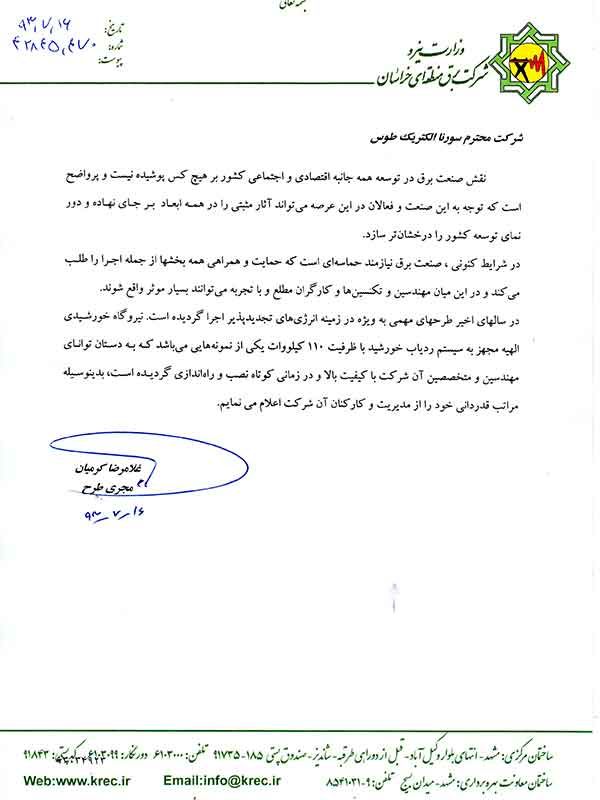 بسمه تعالی
تاریخ: ۹۳,۷,۱۶
شماره:
پیوست:
وزارت نیرو
شرکت برق منطقه‌ای خراسان
شرکت محترم سورنا الکتریک طوس
نقش صنعت برق در توسعه همه جانبه اقتصادی و اجتماعی کشور بر هیچ کس پوشیده نیست و پرواضح
است که توجه به این صنعت و فعالان در این عرصه می‌تواند آثار مثبتی را در همه ابعاد بر جای نهاده و دور
نمای توسعه کشور را درخشان‌تر سازد.
در شرایط کنونی ، صنعت برق نیازمند حماسه‌ای است که حمایت و همراهی همه بخشها از جمله اجرا را طلب
می‌کند و در این میان مهندسین و تکنسین‌ها و کارگران مطلع و با تجربه می‌توانند بسیار موثر واقع شوند.
در سالهای اخیر طرحهای مهمی به ویژه در زمینه انرژی‌های تجدیدپذیر اجرا گردیده است. نیروگاه خورشیدی
الهیه مجهز به سیستم ردیاب خورشید با ظرفیت ۱۱۰ کیلووات یکی از نمونه‌هایی می‌باشد که به دستان توانای
مهندسین و متخصصین آن شرکت با کیفیت بالا و در زمانی کوتاه نصب و راه‌اندازی گردیده است، بدینوسیله
مراتب قدردانی خود را از مدیریت و کارکنان آن شرکت اعلام می نمایم.
غلامرضا کرمیان
مجری طرح
۹۳_۷_۱۶
ساختمان مرکزی: مشهد - انتهای بلوار وکیل آباد - قبل از دوراهی طرقبه - شاندیز - صندوق پستی ۱۸۵-۹۱۷۳۵ تلفن: ۶۱۰۳۰۰۰ دورنگار: ۶۱۰۳۰۹۹ کدپستی: ۹۱۸۴۳
ساختمان معاونت بهره برداری: مشهد - میدان بسیج تلفن: ۹-۸۵۴۱۰۳۱ Email:info@krec.ir Web:www.krec.ir